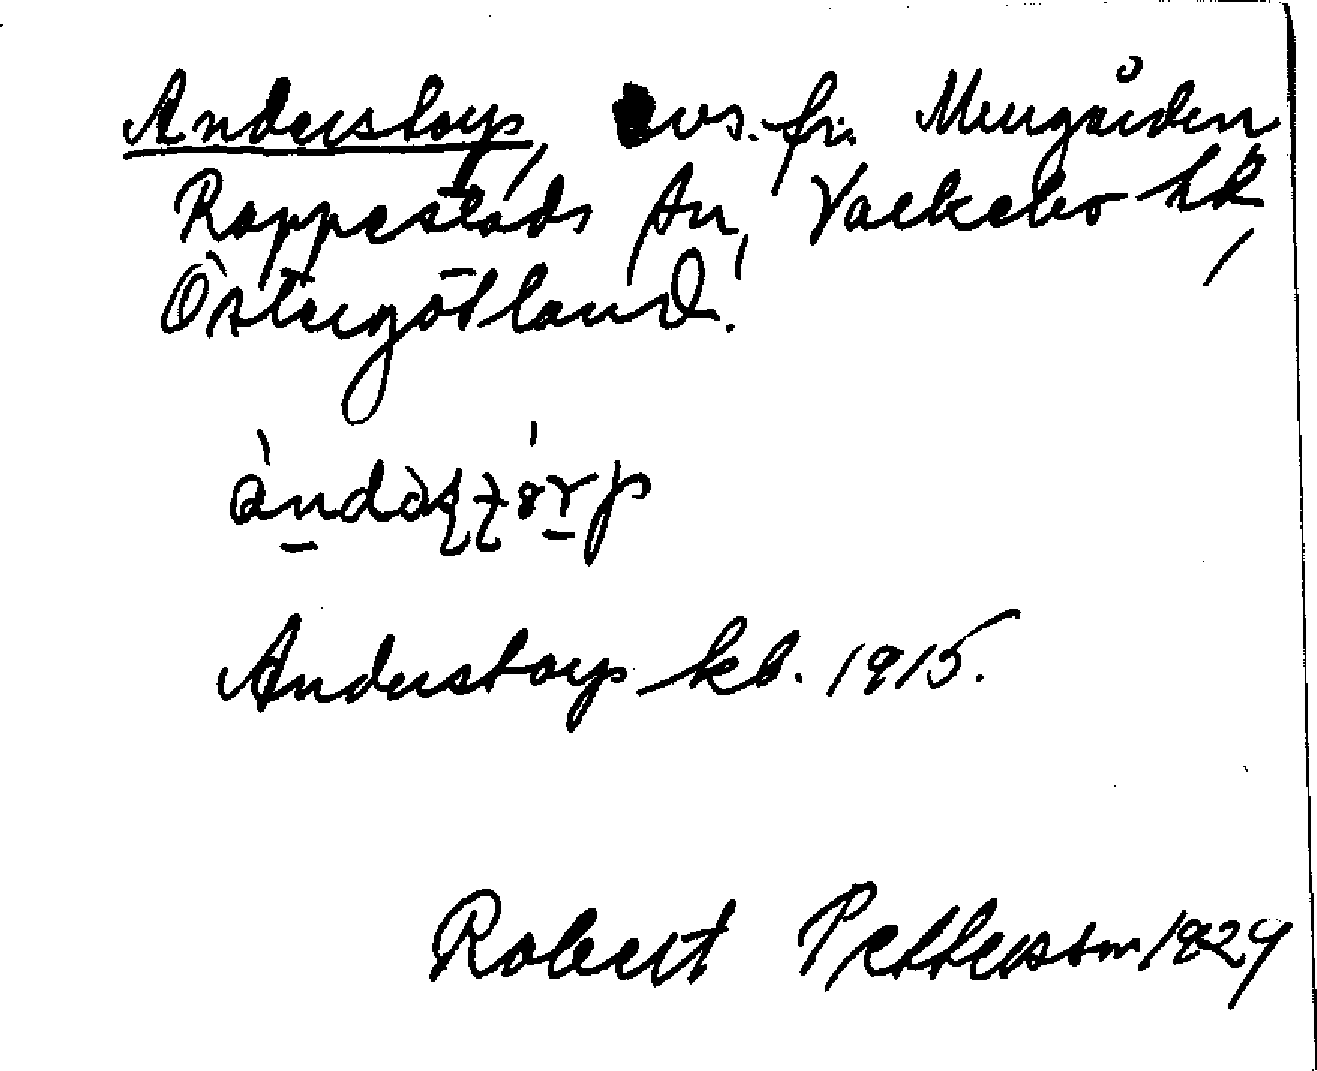 Anderstorp, avs. fr. Murgården
Rappestads sn, Valkebo hd,
Östergötland.
àndàʂʈórp
Anderstorp kb. 1915.
Robert Pettersson 1929